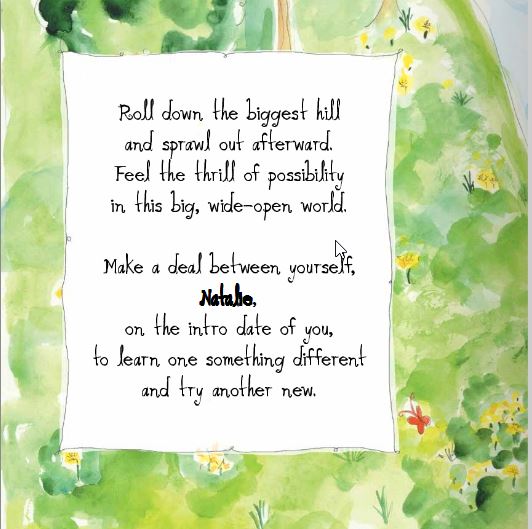 Roll down the biggest hill
and sprawl out afterward.
Feel the thrill of possibility
in this big, wide-open world.
Make a deal between yourself,
Natalie,
on the intro date of you,
to learn one something different
and try another new.